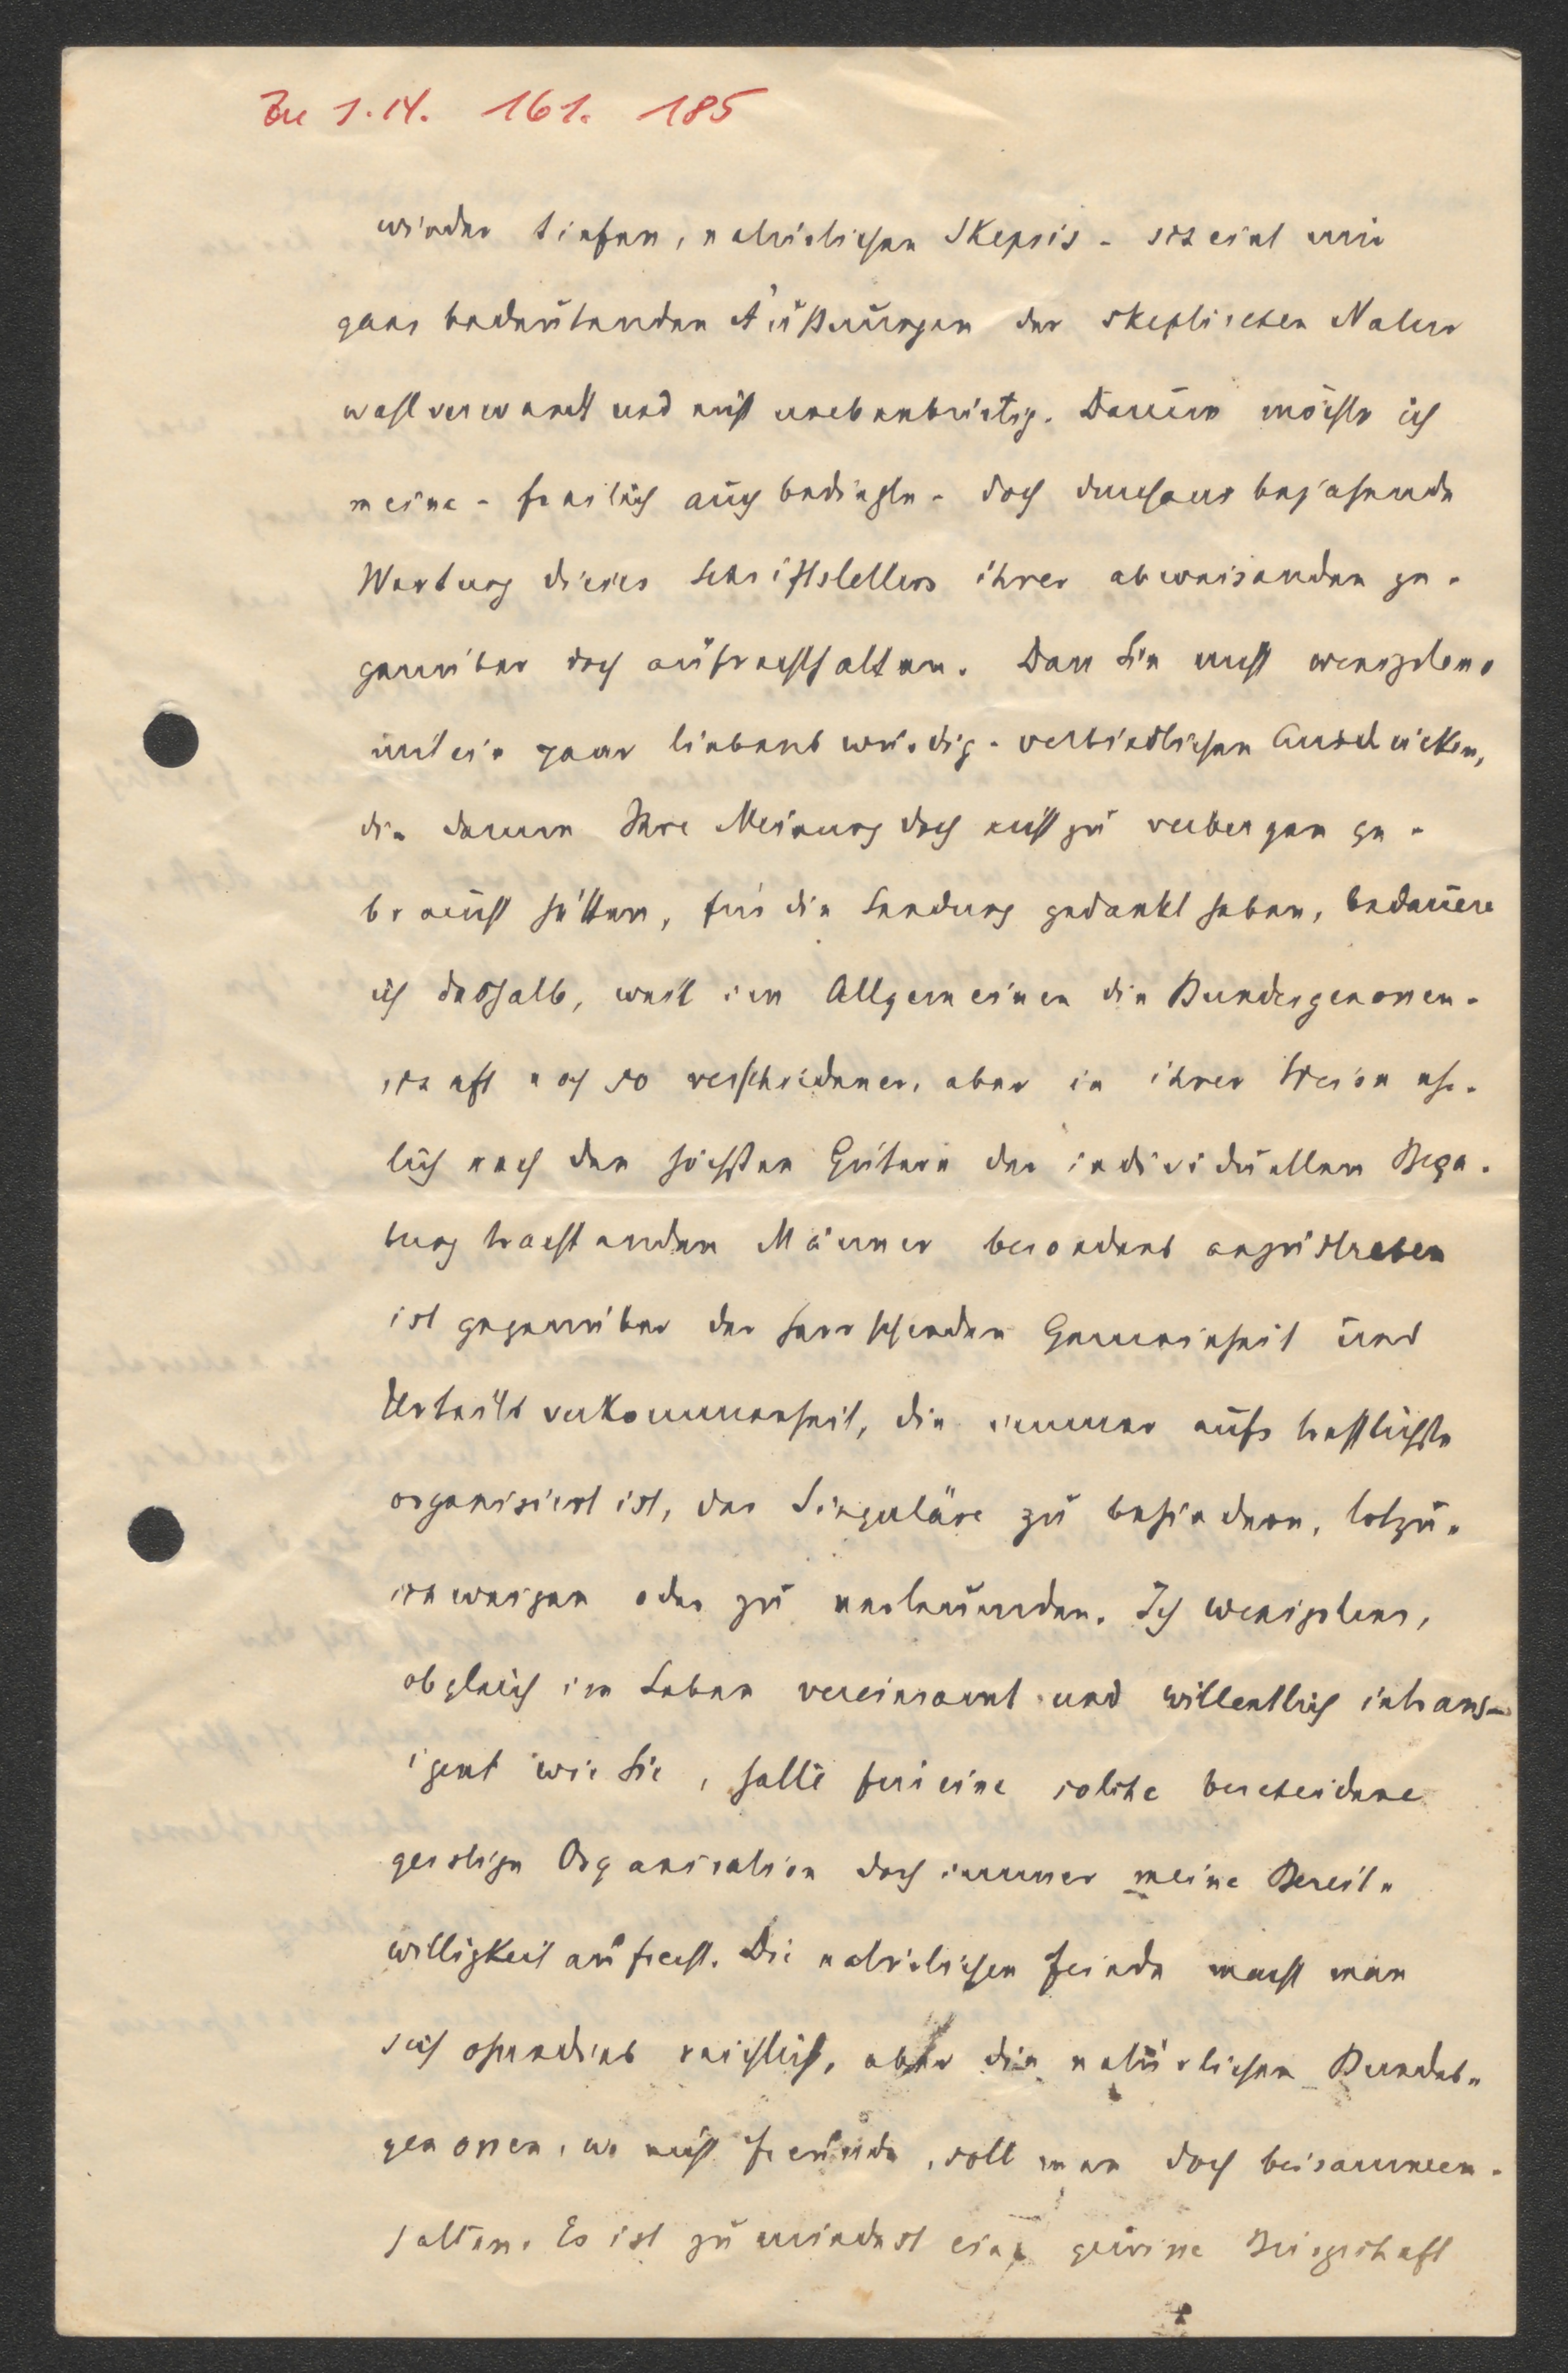 Zu I.N. 161. 185
minder tiefen, natürlichen Skepsis - scheint mir
ganz bedeutenden Äußerungen der skeptischen Natur
wahlverwandt und nicht unebenbürtig. Darum möchte ich
meine - freilich auch bedingte - doch durchaus bejahende
Wertung dieses Schriftstellers ihrer abweisenden ge-
genüber doch aufrechthalten. Dass Sie nicht wenigstens
mit ein paar liebenswürdig-verbindlichen Ausdrücken,
die darum Ihre Meinung doch nicht zu verbergen ge-
braucht hätten, für die Sendung gedankt haben, bedauere
ich deshalb, weil im Allgemeinen die Bundesgenossen-
schaft noch so verschiedener, aber in ihrer Weise ehr-
lich nach den höchsten Gütern der individuellen Bega-
bung trachtenden Männer besonders anzustreben
ist gegenüber der herrschenden Gemeinheit und
Urteilsverkommenheit, die immer aufs trefflichste
organisiert ist, das Singuläre zu behindern, totzu-
schweigen oder zu verleumden. Ich wenigstens,
obgleich im Leben vereinsamt und willentlich intrans-
igent wie Sie, halte für eine solche bescheidene
geistige Organisation doch immer meine Bereit-
willigkeit aufrecht. Die natürlichen Feinde macht man
sich ohnedies reichlich, aber die natürlichen Bundes-
genossen, wo nicht Freunde, soll man doch beisammen-
halten. Es ist zumindest eine gewisse Bürgschaft